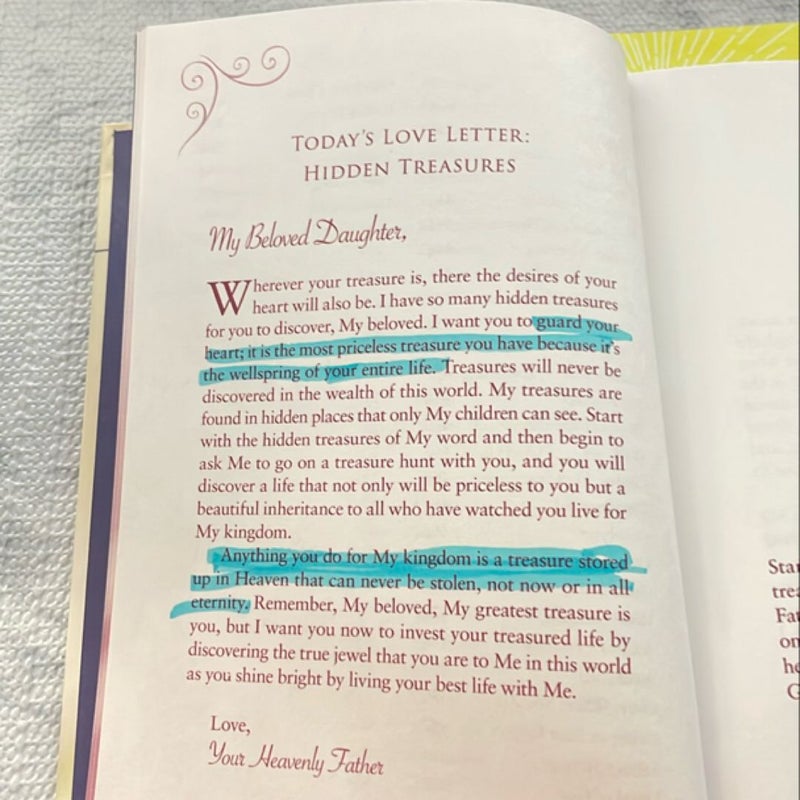 TODAY'S LOVE LETTER:
HIDDEN TREASURES
My Beloved Daughter,
Wherever your treasure is, there the desires of your
heart will also be. I have so many hidden treasures
for you to discover, My beloved. I want you to guard your
heart; it is the most priceless treasure you have because it's
the wellspring of your entire life. Treasures will never be
discovered in the wealth of this world. My treasures are
found in hidden places that only My children can see. Start
with the hidden treasures of My word and then begin to
ask Me to go on a treasure hunt with you, and you will
discover a life that not only will be priceless to you but a
beautiful inheritance to all who have watched you live for
My kingdom.
Anything you do for My kingdom is a treasure stored
up in Heaven that can never be stolen, not now or in all
eternity. Remember, My beloved, My greatest treasure is
you, but I want you now to invest your treasured life by
discovering the true jewel that you are to Me in this world
as you shine bright by living your best life with Me.
Love,
Your Heavenly Father